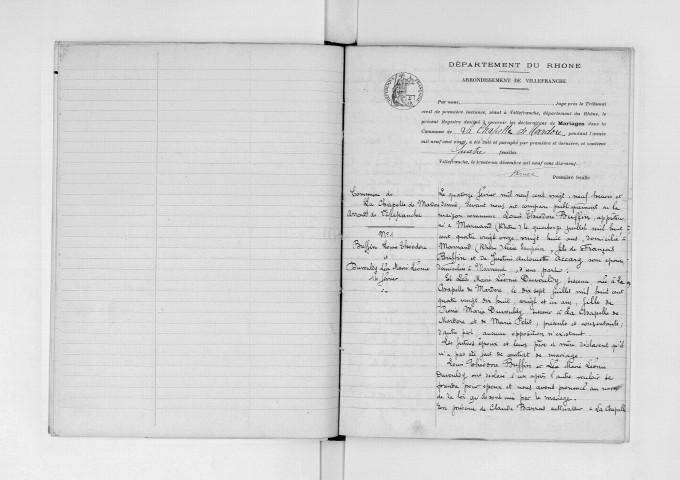 DÉPARTEMENT DU RHONE
ARRONDISSEMENT DE VILLEFRANCHE
Par nous, Juge près le Tribunal
civil de première instance, séant à Villefranche, département du Rhône, le
présent Registre destiné à recevoir les déclarations de Mariages dans la
Commune de La Chapelle de Mardore pendant l'année
mil neuf cent vingt, a été coté et paraphé par première et dernière, et contient
Quatre feuilles
Villefranche, le trente-un décembre mil neuf cent dix-neuf.
Première feuille
Commune de
La Chapelle de Mardore
Arrondt de Villefranche
N° 1
Buffin Louis Théodore
et
Duvouldy Léa Marie Léonie
14 février
Le quatorze février mil neuf cent vingt, neuf heures et
demie, devant nous ont comparu publiquement en la
maison commune Louis Théodore Buffin,
né à Marnand (Rhône) le quatorze juillet mil huit
cent quatre vingt onze, vingt huit ans, domicilié à
Marnand (Rhône) fils de François
Buffin et de Antoinette Accary son épouse,
domiciliés à Marnand, d'une part;
Et Léa Marie Léonie Duvouldy, née à La
Chapelle de Mardore, le dix sept juillet mil huit cent
quatre vingt dix huit, vingt et un ans, fille de
Marie Duvouldy, à La Chapelle de
Mardore et de Marie Petit, présents et consentants;
d'autre part, aucune opposition n'existant
Les futurs époux et leurs père et mère déclarent qu'il
n'a pas été fait de contrat de mariage.
Louis Théodore Buffin et Léa Marie Léonie
Duvouldy ont déclaré l'un après l'autre vouloir se
prendre pour époux et nous avons prononcé au nom
de la loi qu'ils sont unis par le mariage.
En présence de Claude Barras cultivateur à La Chapelle